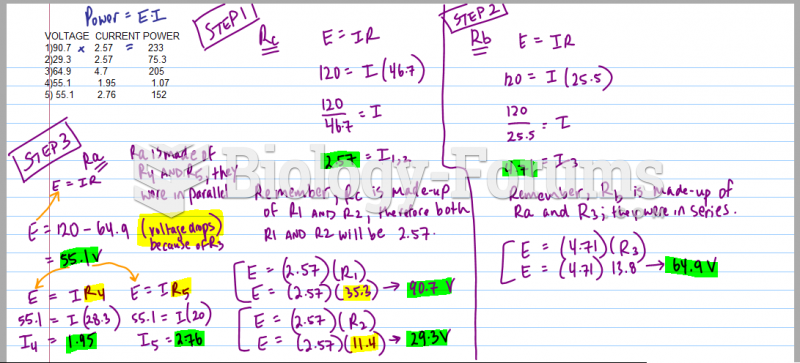 Power = E·I
VOLTAGE CURRENT POWER
1)90.7 x 2.57 = 233
2)29.3 2.57 75.3
3)64.9 4.7 205
4)55.1 1.95 1.07
5) 55.1 2.76 152
STEP 1
Rc
E = IR
120 = I(46.7)
120
46.7 = I
2.57 = I1,2
Remember, Rc is made-up
of R1 AND R2, therefore both
R1 AND R2 will be 2.57.
E = (2.57)(R1)
E = (2.57)(35.3) → 90.7 V
E = (2.57)(R2)
E = (2.57)(11.4) → 29.3V
STEP 2
Rb
E = IR
120 = I(25.5)
120
25.5 = I
= I3
Remember, Rb is made-up of
Ra and R3; they were in series.
E = (4.71)(R3)
E = (4.71) 13.8 → 64.9V
STEP 3
Ra
Ra is made of
R4 AND R5, they
were in parallel
E = IR
E = 120 - 64.9 (voltage drops)
because of R3
= 55.1V
E = I R4 E = I R5
55.1 = I(28.3) 55.1 = I(20)
I4 = 1.95 I5 = 2.76
Biology-Forums